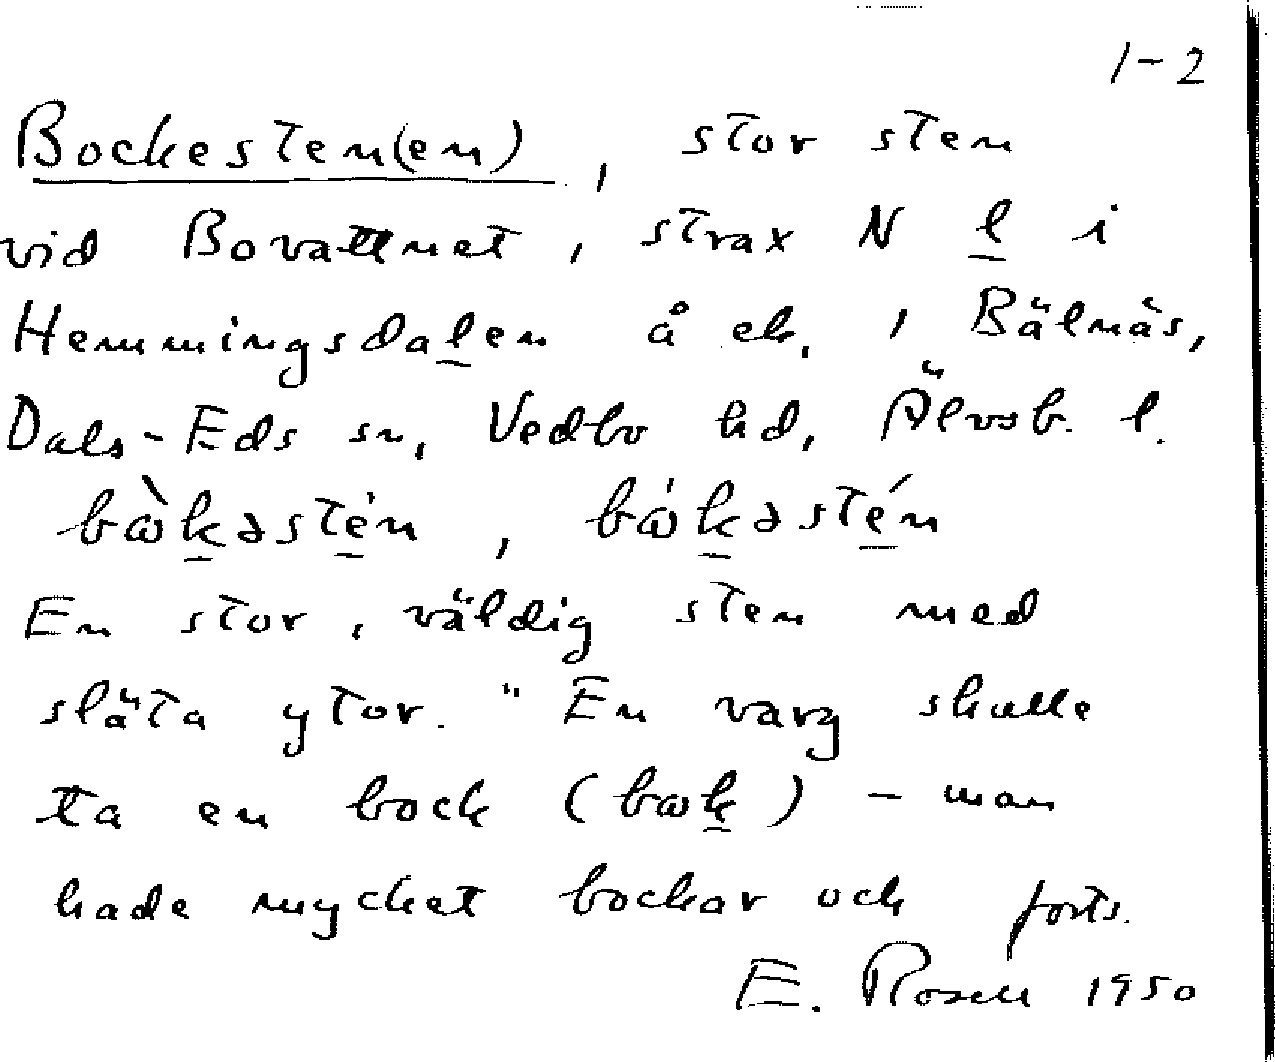 1-2
Bockesten(en), stor sten
vid Bovattnet, strax N l i
Hemmingsdalen å ek. 1 Bälnäs,
Dals-Eds sn, Vedbo hd, Älvsb. l.
bὼkəstén, bώkəstén
En stor, väldig sten med
släta ytor. "En varg skulle
ta en bock (bωk) – man
hade mycket bockar och forts.
E. Rosell 1950